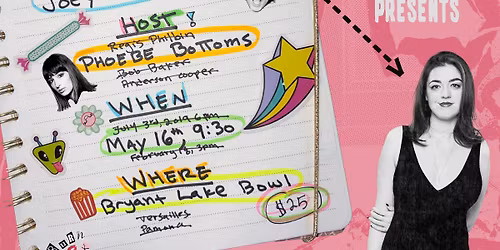 Joey
PRESENTS
HOST!
Regis Philbin
PHOEBE BOTTOMS
Bob Baker
Anderson Cooper
WHEN
July 3rd, 2019 6pm
MAY 16th 9:30
February 18, 3pm
WHERE
Bryant Lake Bowl
$25
Versailles
Pamona